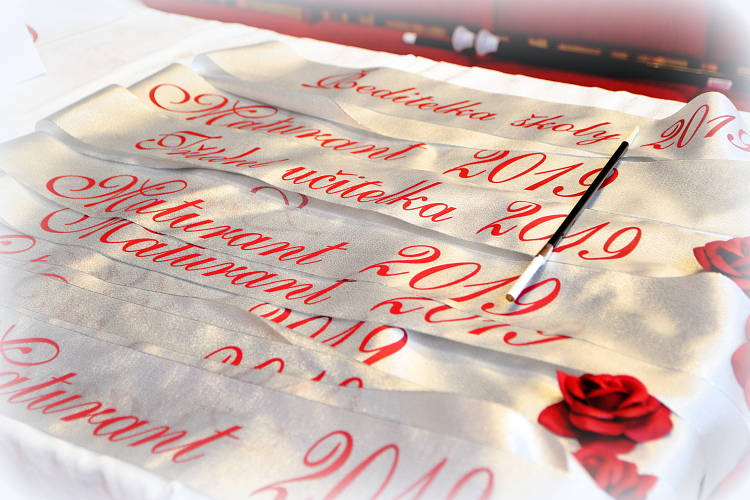 Ředitelka školy 2019
Maturant 2019
Třídní učitelka 2019
Maturant 2019
Maturant 2019
2019
Maturant 2019